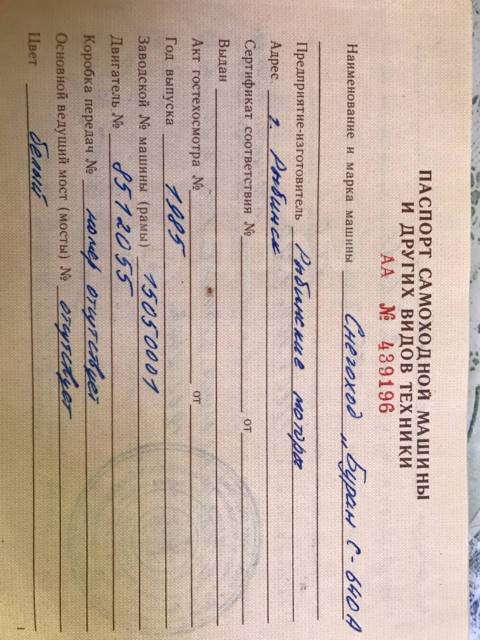 ПАСПОРТ САМОХОДНОЙ МАШИНЫ
И ДРУГИХ ВИДОВ ТЕХНИКИ
АА № 439196
Наименование и марка машины Снегоход „Буран С-640А
Предприятие-изготовитель Рыбинские моторы
Адрес г. Рыбинск
Сертификат соответствия № от
Выдан
Акт гостехосмотра № от
Год выпуска 1985
Заводской № машины (рамы) 15050001
Двигатель № 8512055
Коробка передач № номер отсутствует
Основной ведущий мост (мосты) № отсутствует
Цвет белый